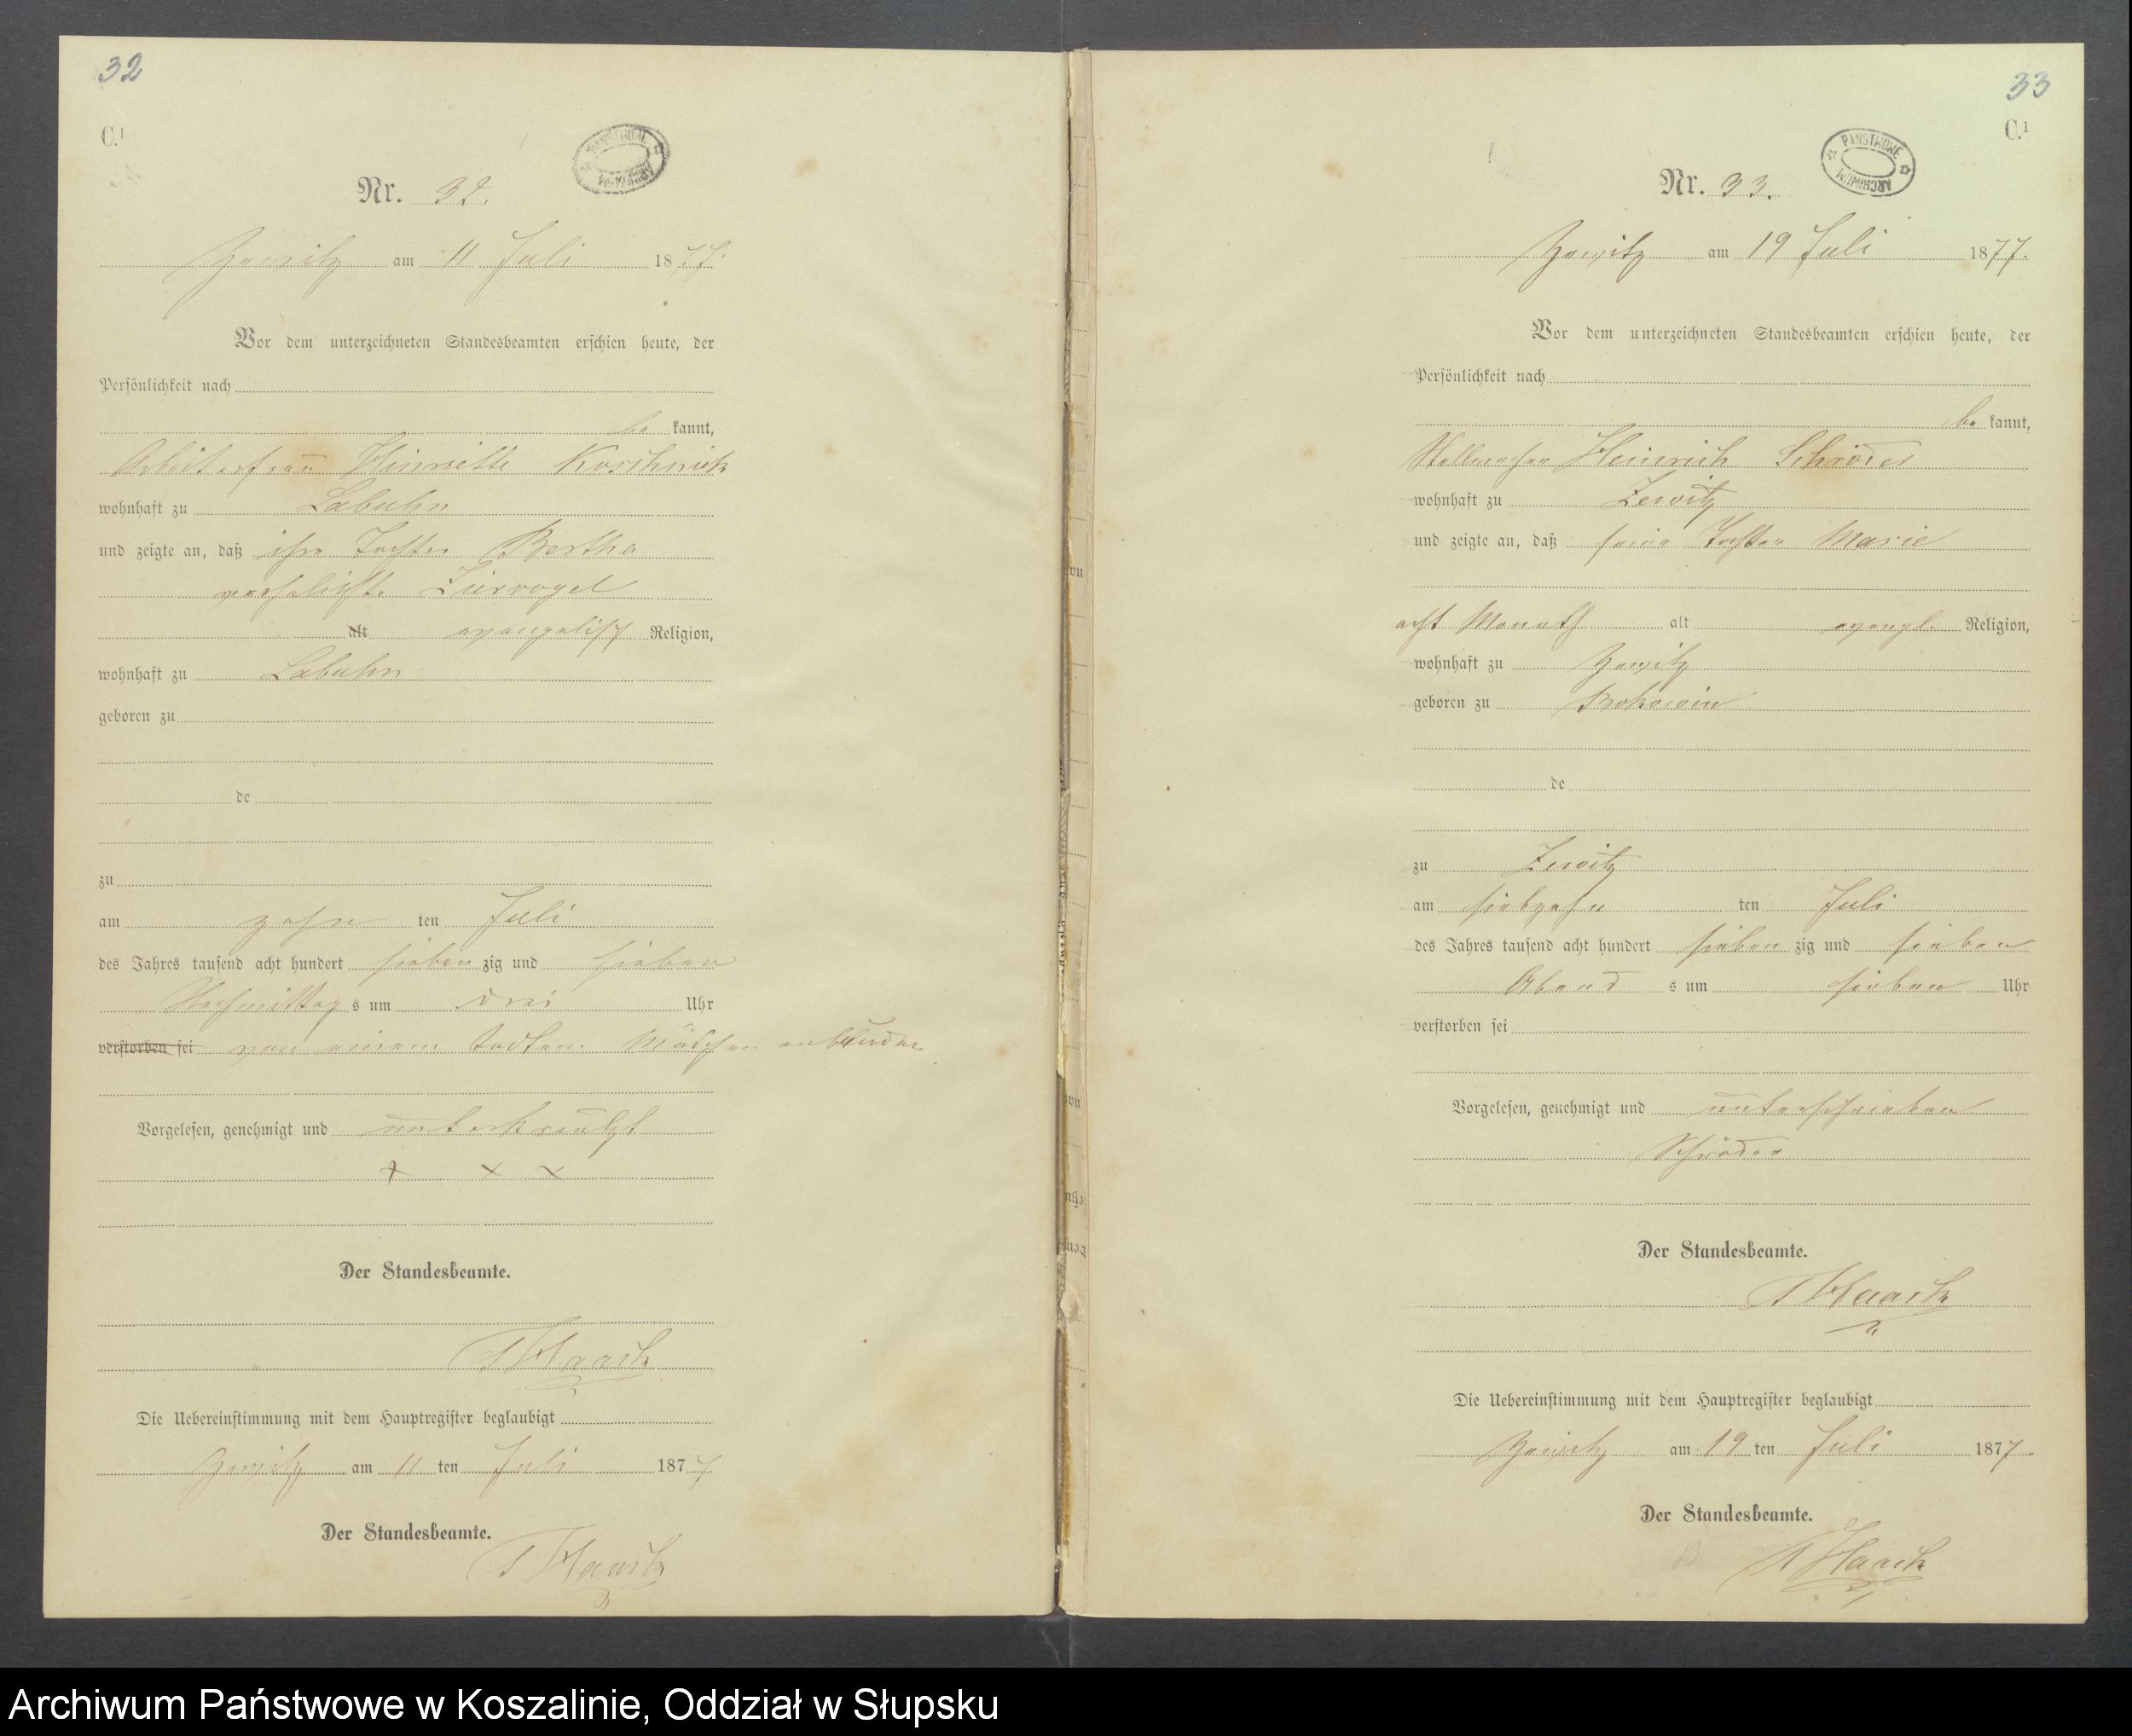 32
C.1
PANSTWOWE ARCHIWUM
Nr. 32.
Zewitz am 11 Juli 1877.
Vor dem unterzeichneten Standesbeamten erschien heute, der
Persönlichkeit nach
be kannt,
Arbeiterfrau Henriette Koschnick
wohnhaft zu Labuhn
und zeigte an, daß ihre Tochter Bertha
verehelichte Ziervogel
alt evangelisch Religion,
wohnhaft zu Labuhn
geboren zu
de
zu
am zehn ten Juli
des Jahres tausend acht hundert sieben zig und sieben
Nachmittag s um drei Uhr
verstorben sei von einem todten Mädchen entbunden
Vorgelesen, genehmigt und unterkreuzt
+ × ×
Der Standesbeamte.
Haack
Die Uebereinstimmung mit dem Hauptregister beglaubigt
Zewitz am 11 ten Juli 1877
Der Standesbeamte.
Haack
33
C.1
PANSTWOWE ARCHIWUM
Nr. 33.
Zewitz am 19 Juli 1877.
Vor dem unterzeichneten Standesbeamten erschien heute, der
Persönlichkeit nach
be kannt,
Stellmacher Heinrich Schröder
wohnhaft zu Zewitz
und zeigte an, daß seine Tochter Marie
acht Monath alt evangl. Religion,
wohnhaft zu Zewitz
geboren zu
de
zu Zewitz
am siebzehn ten Juli
des Jahres tausend acht hundert sieben zig und sieben
Abend s um sieben Uhr
verstorben sei
Vorgelesen, genehmigt und unterschrieben
Schröder
Der Standesbeamte.
Haack
Die Uebereinstimmung mit dem Hauptregister beglaubigt
Zewitz am 19 ten Juli 1877
Der Standesbeamte.
Haack
Archiwum Państwowe w Koszalinie, Oddział w Słupsku